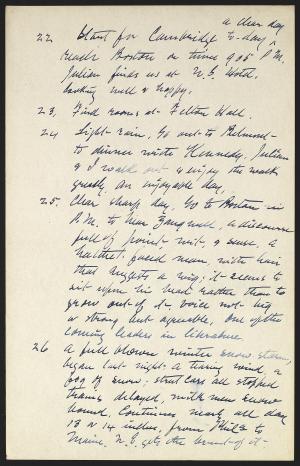 a clear day
22 Start for Cambridge to-day ^
reach Boston on time 9 05 P.M.
Julian finds us at N.E. Hotel,
looking well & happy.
23, Find rooms at Felton Hall.
24 Light rain, Go out to Belmont
to dinner with Kennedy. Julian
& I walk out & enjoy the walk
greatly, An enjoyable day.
25. Clear sharp day, Go to Boston in
P.M. to hear Zangwill, a discourse
full of point, wit, & sense. A
faced man, with hair
that suggests a wig; it seems to
sit upon his head rather than to
grow out of it- voice not big
or strong but agreeable, One of the
coming leaders in literature
26 A full blown winter snow-storm,
began last night. A tearing wind, a
fog of snow; street cars all stopped
trains delayed, milk men snow
bound. Continues nearly all day
13 or 14 inches, from Phila to
Maine. N.E. gets the brunt of it-